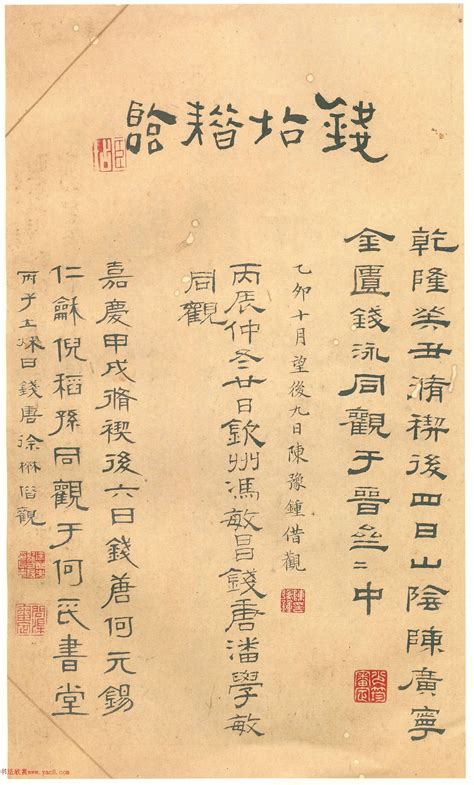 錢坫䊺臨
乾隆癸丑脩禊後四日山陰陳廣寧
金匱錢泳同觀于晉壘二中
乙卯十月望後九日陳豫鍾借觀
丙辰仲冬廿日欽州馮敏昌錢唐潘學敏
同觀
嘉慶甲戌脩禊後六日錢唐何元錫
仁龢倪稻孫同觀于何氏書堂
丙子上日錢唐徐楙觀
书法欣赏www.yac8.com